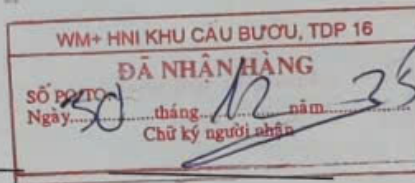 WM+ HNI KHU CẦU BƯƠU, TDP 16
ĐÃ NHẬN HÀNG
SỐ PO/TO
Ngày 30 tháng 12 năm 25
Chữ ký người nhận